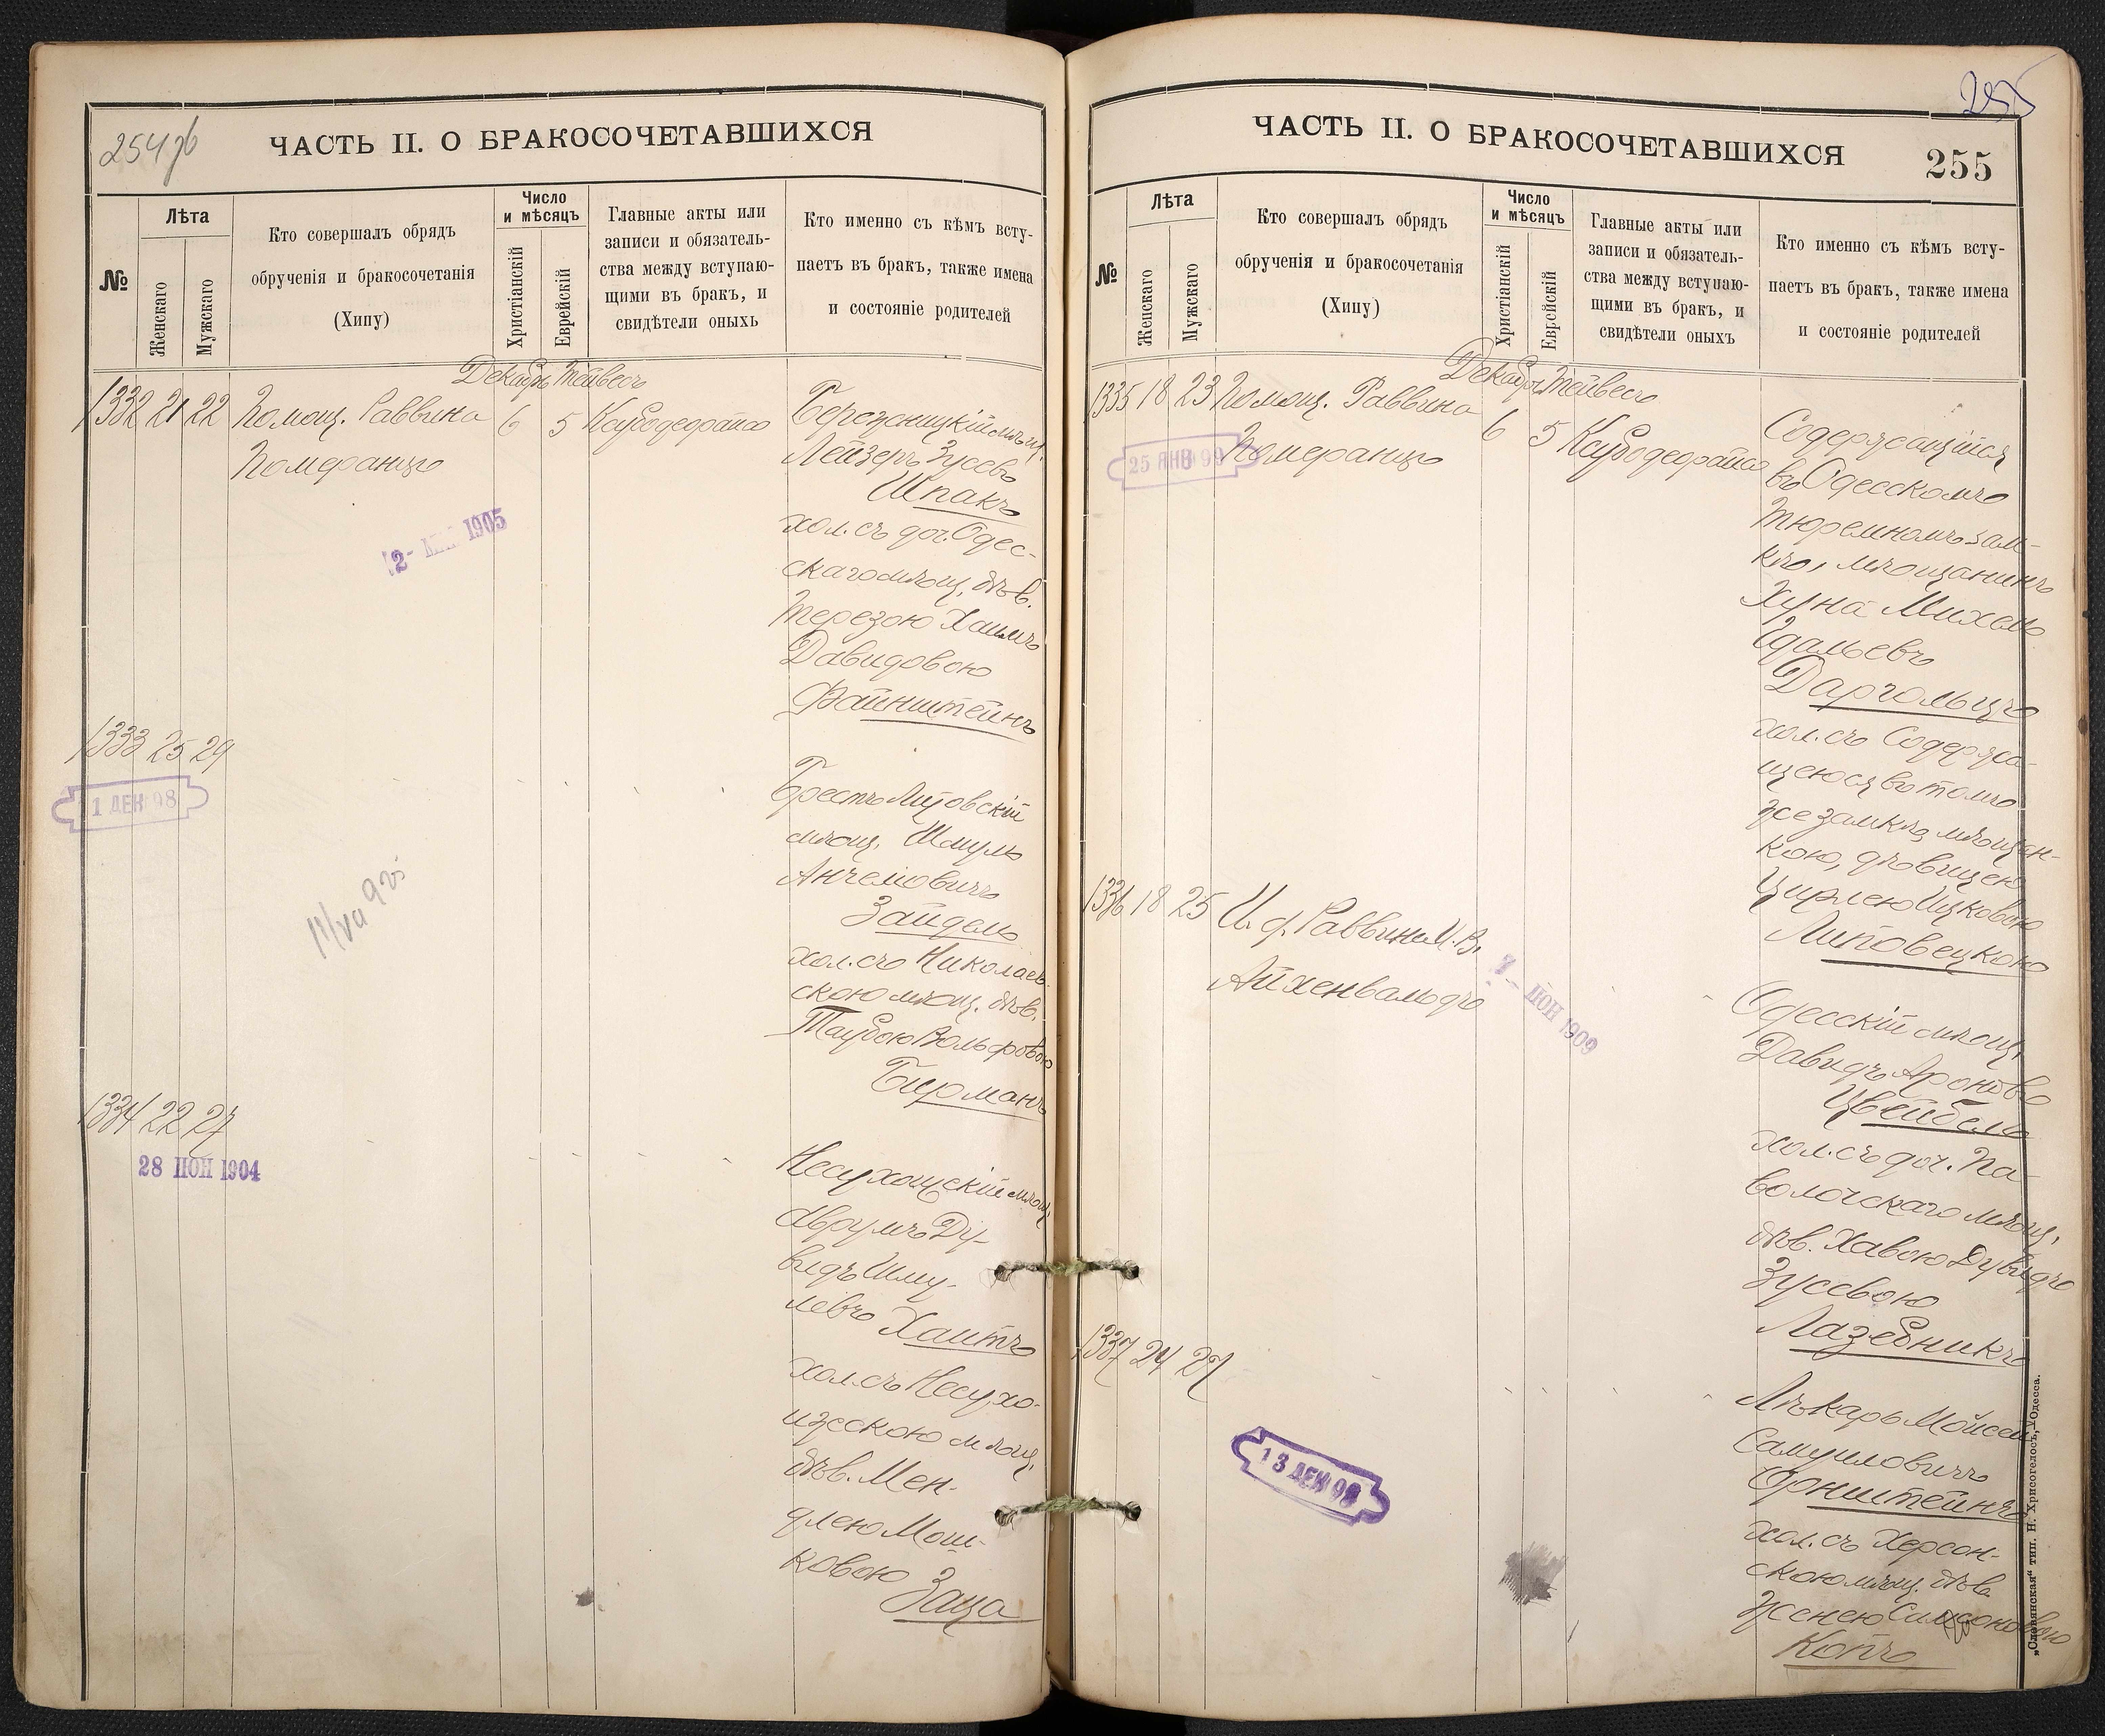 254 об
ЧАСТЬ II. О БРАКОСОЧЕТАВШИХСЯ
№
Лѣта
Женскаго
Мужскаго
Кто совершалъ обрядъ
обрученія и бракосочетанія
(Хипу)
Число
и мѣсяцъ
Христіанскій
Еврейскій
Главные акты или
записи и обязатель-
ства между вступаю-
щими въ бракъ, и
свидѣтели оныхъ
Кто именно съ кѣмъ всту-
паетъ въ бракъ, также имена
и состояніе родителей
Декабрь Тейвесъ
1332 21 22 Помощ. Раввина 6 5
Померанцъ
Лейзеръ Зусевъ
Шпакъ
хол. съ доч. Одес-
скаго мѣщ. дѣв.
Терезою Хаимъ
Давидовою
Файнштейнъ
1905
1333 25 29
1 ДЕК 98
Брестъ Литовскій
мѣщ. Шмуль
Анчеловичъ
Зайдель
хол. съ Николаев-
скою мѣщ. дѣв.
Таубою Вольфовою
Бирманъ
1334 22 27
28 ІЮН 1904
мѣщ.
Аврумъ Ду-
видъ Шму-
левъ Хаитъ
хол. съ Несухо-
ижскою мѣщ.
дѣв. Мен-
длею Мош-
ковою Заца
255
ЧАСТЬ II. О БРАКОСОЧЕТАВШИХСЯ
255
№
Лѣта
Женскаго
Мужскаго
Кто совершалъ обрядъ
обрученія и бракосочетанія
(Хипу)
Число
и мѣсяцъ
Христіанскій
Еврейскій
Главные акты или
записи и обязатель-
ства между вступаю-
щими въ бракъ, и
свидѣтели оныхъ
Кто именно съ кѣмъ всту-
паетъ въ бракъ, также имена
и состояніе родителей
Декабрь Тейвесъ
1335 18 23 Помощ. Раввина 6 5
Померанцъ
25 ЯНВ 99
Содержащійся
въ Одесскомъ
тюремномъ зам-
кѣ, мѣщанинъ
Хуна Михель
Гдальевъ
Даргольцъ
хол. съ Содержа-
щеюся въ томъ
же замкѣ мѣщан-
кою, дѣвицею
Ципею Ицковою
Липовецкою
1336 18 25 И. д. Раввина М. В.
Айхенвальдъ
ІЮН 1909
Одесскій мѣщ.
Давидъ Ароновъ
Цвейбель
хол. съ доч. Па-
волочскаго мѣщ.
дѣв. Хавою Дувидъ
Зусевою
Лазебникъ
1337 24 27
13 ДЕК 98
Лѣкарь Мойсей
Самуиловичъ
Орнштейнъ
хол. съ Херсон-
скою мѣщ. дѣв.
Женею Самсоновою
Копъ
„Славянская“ тип. Н. Хрисогелосъ, Одесса.